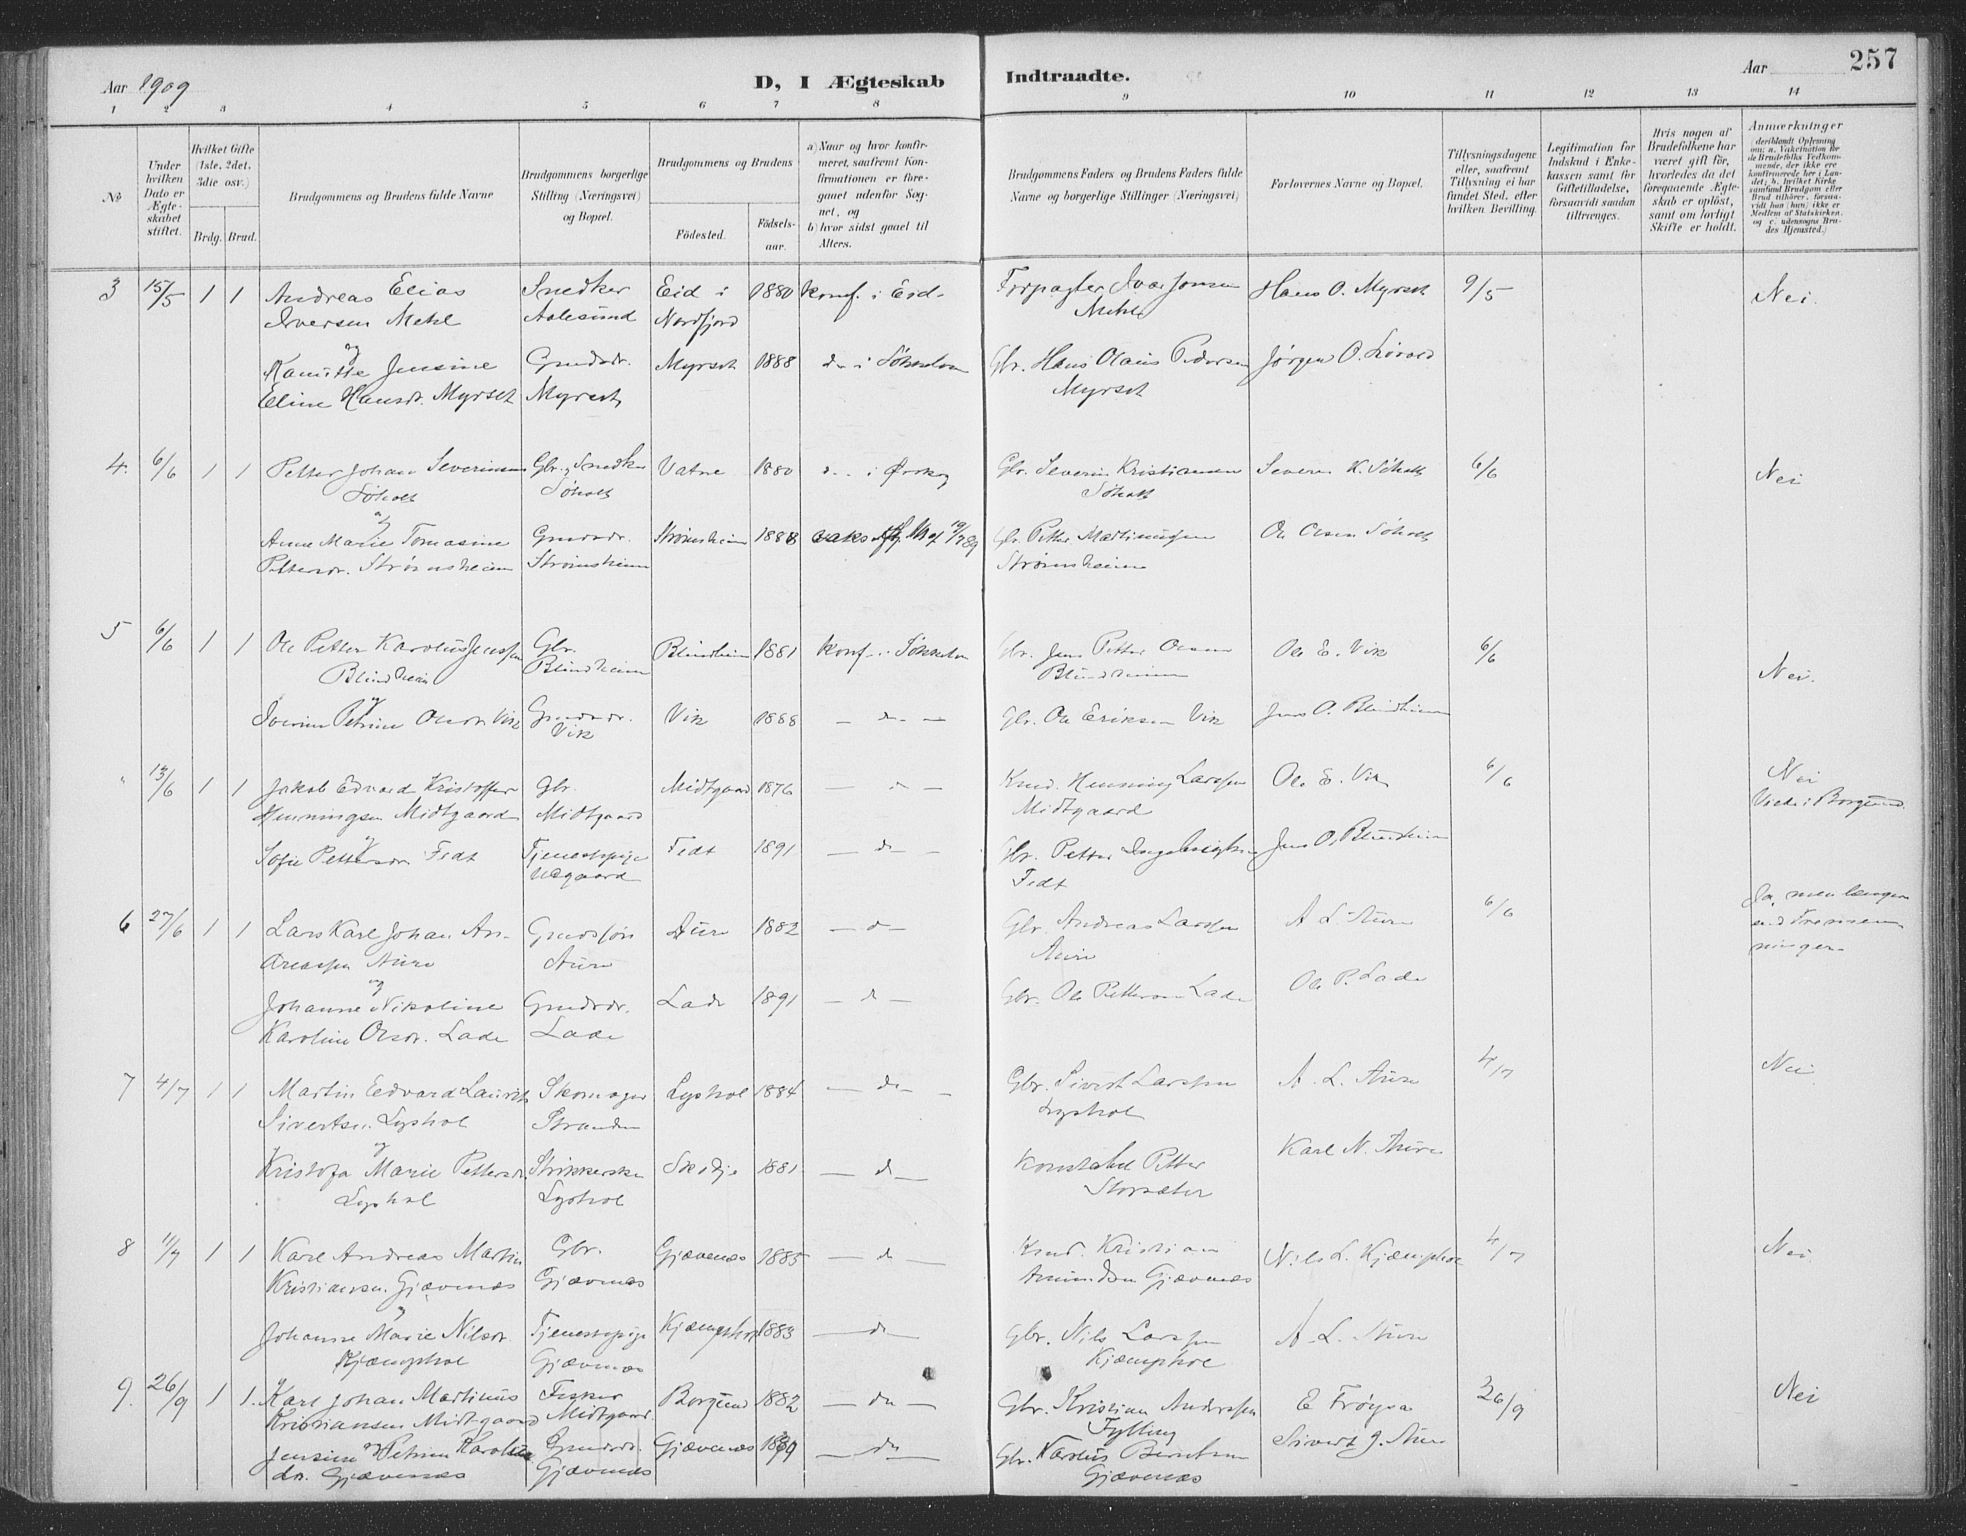 Aar 1909
D, I Ægteskab
Indtraadte.
Aar
257
1 2 3 4 5 6 7 8 9 10 11 12 13 14
No
Under hvilken Dato er Ægteskabet stiftet.
Hvilket Gifte (1ste, 2det, 3die osv.)
Brdg. Brud.
Brudgommens og Brudens fulde Navne
Brudgommens borgerlige Stilling (Næringsvei) og Bopæl.
Brudgommens og Brudens
Födested.
Födselsaar.
a) Naar og hvor konfirmeret, saafremt Konfirmationen er foregaaet udenfor Sognet, og
b) hvor sidst gaaet til Alters.
Brudgommens Faders og Brudens Faders fulde Navne og borgerlige Stillinger (Næringsvei)
Forlovernes Navne og Bopæl.
Tillysningsdagene eller, saafremt Tillysning ei har fundet Sted, efter hvilken Bevilling.
Legitimation for Indskud i Enkekassen samt for Giftetilladelse, forsaavidt saadan tiltrænges.
Hvis nogen af Brudefolkene har været gift før, hvorledes da det foregaaende Ægteskab er oplöst, samt om lovligt Skifte er holdt.
Anmærkninger (deriblandt Oplysning om: a. Vakcination for de Brudefolks Vedkommende, der ikke ere konfirmerede her i Landet; b. hvilket Kirkesamfund Brudgom eller Brud tilhörer, forsaavidt han (hun) ikke er Medlem af Statskirken, og c. udensogns Brudes Hjemsted.)
3 15/5 1 1 Andreas Elias Snedker Eid i 1880 Konf. i Eid Forpagter Ivar Jonsen Hans O. Myrset 9/5 Nei.
Iversen Mehl Aalesund Nordfjord Mehl
og
Kanutte Jensine Gmdsdr. Myrset 1888 do i Søkkelven Gbr. Hans Olaus Pedersen Jørgen O.
Eline Hansdr. Myrset Myrset Myrset
4. 6/6 1 1 Petter Johan Severinsen Gbr., Snedker Vatne 1880 do i Ørskog Gbr. Severin Kristiansen Severin K. Søholt 6/6 Nei
Søholt Søholt Søholt
og
Anne Marie Tomasine Gmdsdr. Strømsheim 1888 vaks 19/7 89 Gbr. Petter Martinussen Ole Olsen Søholt
Pettersdr. Strømsheim Strømsheim Strømsheim
5 6/6 1 1 Ole Petter Karolus Jenssen Gbr. Blindheim 1881 Konf. i Søkkelven Gbr. Jens Petter Olsen Ole E. Vik 6/6 Nei.
Blindheim Blindheim Blindheim
og
Petrine Olsdr. Vik Gmdsdr. Vik 1888 do Gbr. Ole Eriksen Vik Jens O. Blindheim
Vik
" 13/6 1 1 Jakob Edvard Kristoffer Gbr. Midtgaard 1876 do Kmd. Henning Larssen Ole E. Vik 6/6 Nei
Henningsen Midtgaard Midtgaard Midtgaard Viede i Borgund
og
Sofie Pettersdr Fedt Tjenestepige Fedt 1891 do Gbr. Petter Ingebrigtsen Jens O. Blindheim
Fedt
6 27/6 1 1 Lars Karl Johan An- Gmdssøn Aure 1882 do Gbr. Andreas Larssen A. L. Aure 6/6 Ja, men længere
dreassen Aure Aure Aure
og
Johanne Nikoline Gmdsdr. Lade 1891 do Gbr. Ole Pettersen Lade Ole P. Lade
Karoline Olsdr. Lade Lade
7 4/7 1 1 Martin Edvard Laurits Skomager Lyshol 1884 do Gbr. Sivert Larssen A. L. Aure 4/7 Nei
Sivertsen Lyshol Stranden Lyshol
og
Kristofa Marie Pettersdr. Strikkerske Skodje 1881 do Konstabel Petter Karl N. Aure
Lyshol Lyshol Storsæter
8 11/7 1 1 Karl Andreas Martin Gbr. Gjævenæs 1885 do Kmd. Kristian Nils L. Kjæmphol 4/7 Nei
Kristiansen Gjævenæs Gjævenæs Amundsen Gjævenæs
og
Johanne Marie Nilsdr Tjenestepige Kjæmphol 1883 do Gbr. Nils Larssen A. L. Aure
Kjæmphol Gjævenæs Kjæmphol
9. 26/9 1 1. Karl Johan Martinus Fisker Borgund 1882 do Gbr. Kristian Anderssen E Frøysa 26/9 Nei
Kristiansen Midtgaard Midtgaard. Fylling
og
Jensine Petrine Karolus Gmdsdr. Gjævenæs do Gbr. Karolus Berntsen Sivert J. Aure
dr. Gjævenæs Gjævenæs Gjævenæs